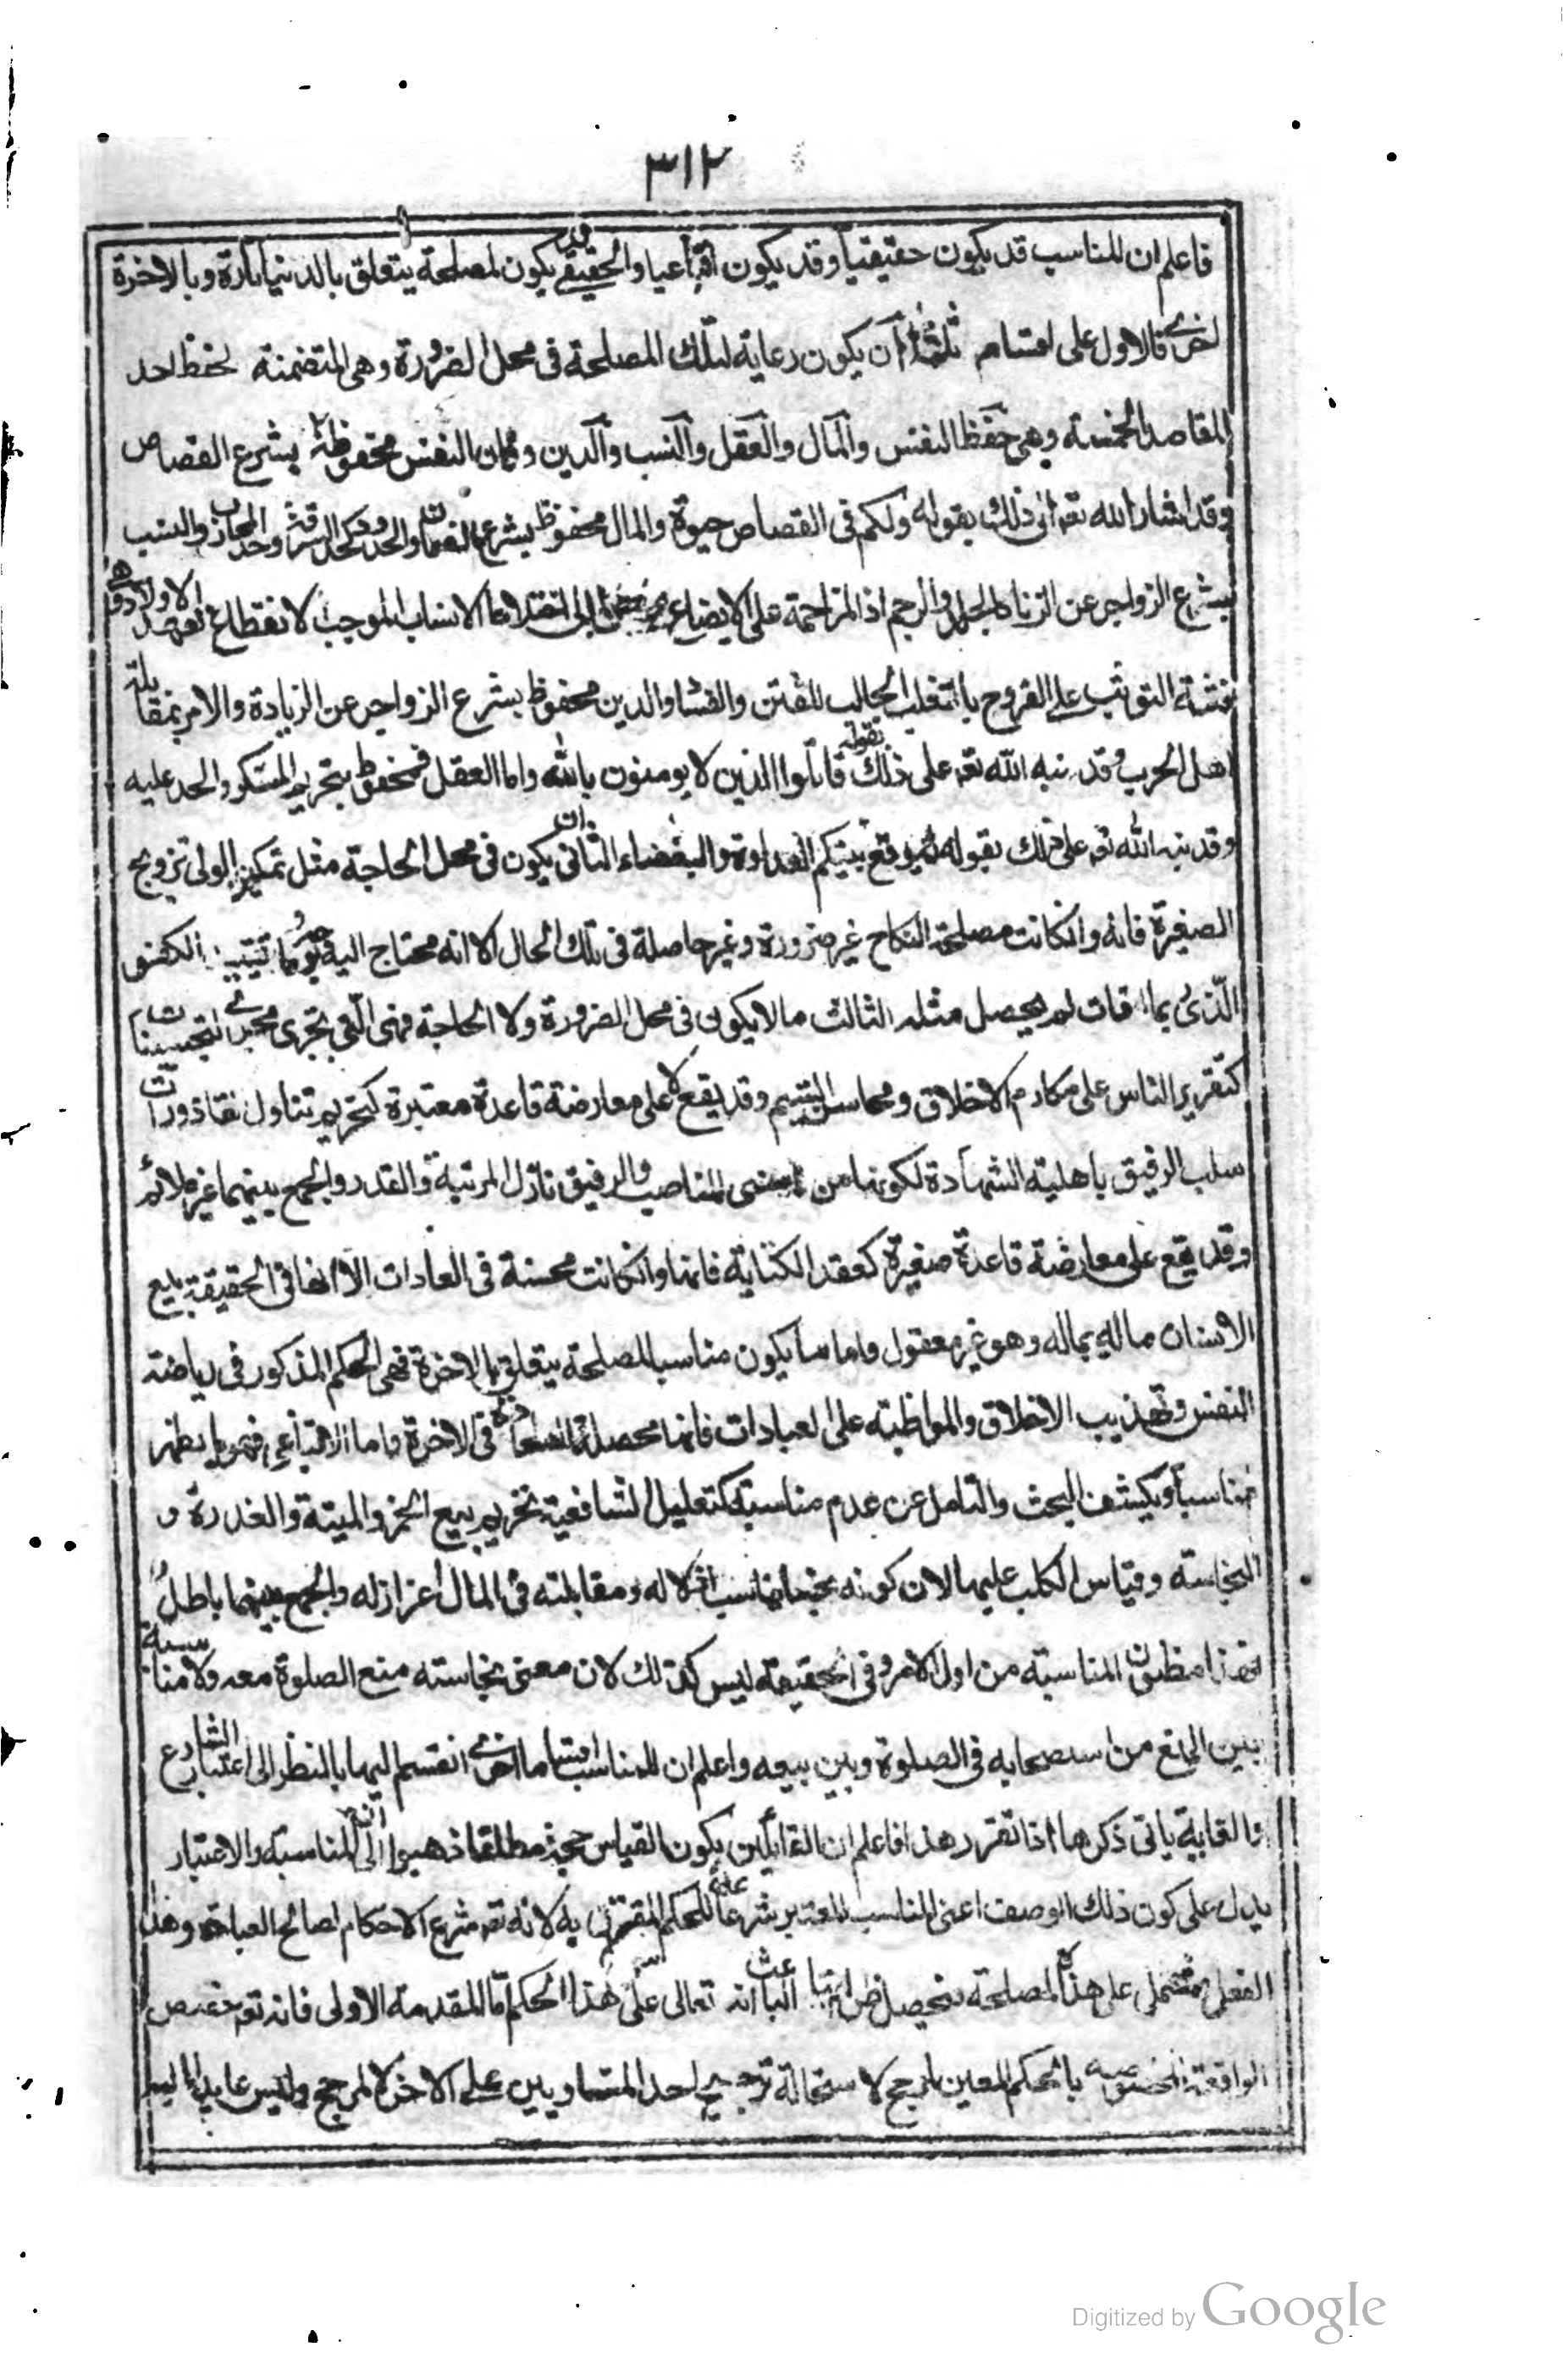 ٣١٢
فاعلم ان المناسب قد يكون حقيقيا وقد يكون اقناعيا والحقيقي قد يكون لمصلحة يتعلق بالدنيا تارة وبالاخرة
اخرى فالاول على اقسام ثلثة ا ان يكون رعاية لتلك المصلحة فى محل الضرورة وهى المتضمنة لحفظ احد
المقاصد الخمسة وهى حفظ النفس والمال والعقل والنسب والدين فان النفس محفوظة بشرع القصاص
وقد اشار الله تعـ الى ذلك بقوله ولكم فى القصاص حيوة والمال محفوظ بشرع الضمان والحدود كحد السرقة وحد المحارب والنسب
بشرع الزواجر عن الزنا كالجلد والرجم اذ المزاحمة على الابضاع الى اختلاط الانساب الموجب لانقطاع تعهد الاولاد وهى
التوثب على الفروج بالتغلب الجالب للفتن والفساد والدين محفوظ بشرع الزواجر عن الزيادة والامر بمقابلة
اهل الحرب وقد نبه الله تعـ على ذلك بقوله قاتلوا الذين لا يومنون بالله واما العقل فمحفوظ بتحريم المسكر والحد عليه
وقد نبه الله تعـ على ذلك بقوله يوقع بينكم العداوة والبغضاء الثانى ان يكون فى محل الحاجة مثل تمكين الولى تزويج
الصغيرة فانه وانكانت مصلحة النكاح غير ضرورة وغير حاصلة فى تلك الحال الا انه محتاج اليه الكفو
الذى بما فات لم يحصل مثله الثالث ما لا يكون فى محل الضرورة ولا الحاجة فهى التى تجرى مجرى التحسينات
كتقرير الناس على مكارم الاخلاق ومحاسن الشيم وقد يقع لا على معارضة قاعدة معتبرة كتحريم تناول القاذورات
سلب الرقيق باهلية الشهادة لكونها من المناصب والرقيق نازل المرتبة والقدر والجمع بينهما غير ملائم
وقد يقع على معارضة قاعدة كعقد الكتابة فانها وانكانت محسنة فى العادات الا انها فى الحقيقة بيع
الانسان ماله بماله وهو غير معقول واما ما يكون مناسبا لمصلحة يتعلق بالاخرة فهى الحكم المذكور فى رياضة
النفس وتهذيب الاخلاق والمواظبة على العبادات فانها محصلة السعادة فى الاخرة واما الاقناعى فهو ما يظهر
مناسبا ويكشف البحث والتامل عن عدم مناسبته كتعليل الشافعية تحريم بيع الخمر والميتة والعذرة و
النجاسة وقياس الكلب عليها لان كونه نجسا يناسب اذلاله ومقابلته فى المال اعزاز له والجمع بينهما باطل
فهذا مظنون المناسبة من اول الامر وفى الحقيقة ليس كذلك لان معنى نجاسته منع الصلوة معه ولا مناسبة
بين المنع من استصحابه فى الصلوة وبين بيعه واعلم ان للمناسب اقساما اخرى انقسم اليها بالنظر الى اعتبار الشارع
والغاية ياتى ذكرها اذا تقرر هذا فاعلم ان القائلين بكون القياس حجة مطلقا ذهبوا الى ان المناسبة والاعتبار
يدل على كون ذلك الوصف اعنى المناسب المعتبر شرعا علة للحكم المقترن به لانه تعـ شرع الاحكام لمصالح العباد وهذا
الفعل مشتمل على هذه المصلحة فيحصل ظن ان الباعث له تعالى على هذا الحكم اما المقدمة الاولى فانه تعـ خصص
الواقعة المخصوصة بالحكم المعين لمرجح لاستحالة ترجيح احد المتساويين على الاخر لا لمرجح وليس عايدا اليه
Digitized by Google